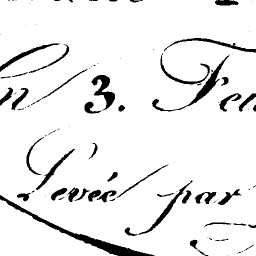 n 3. Feu
Levée par